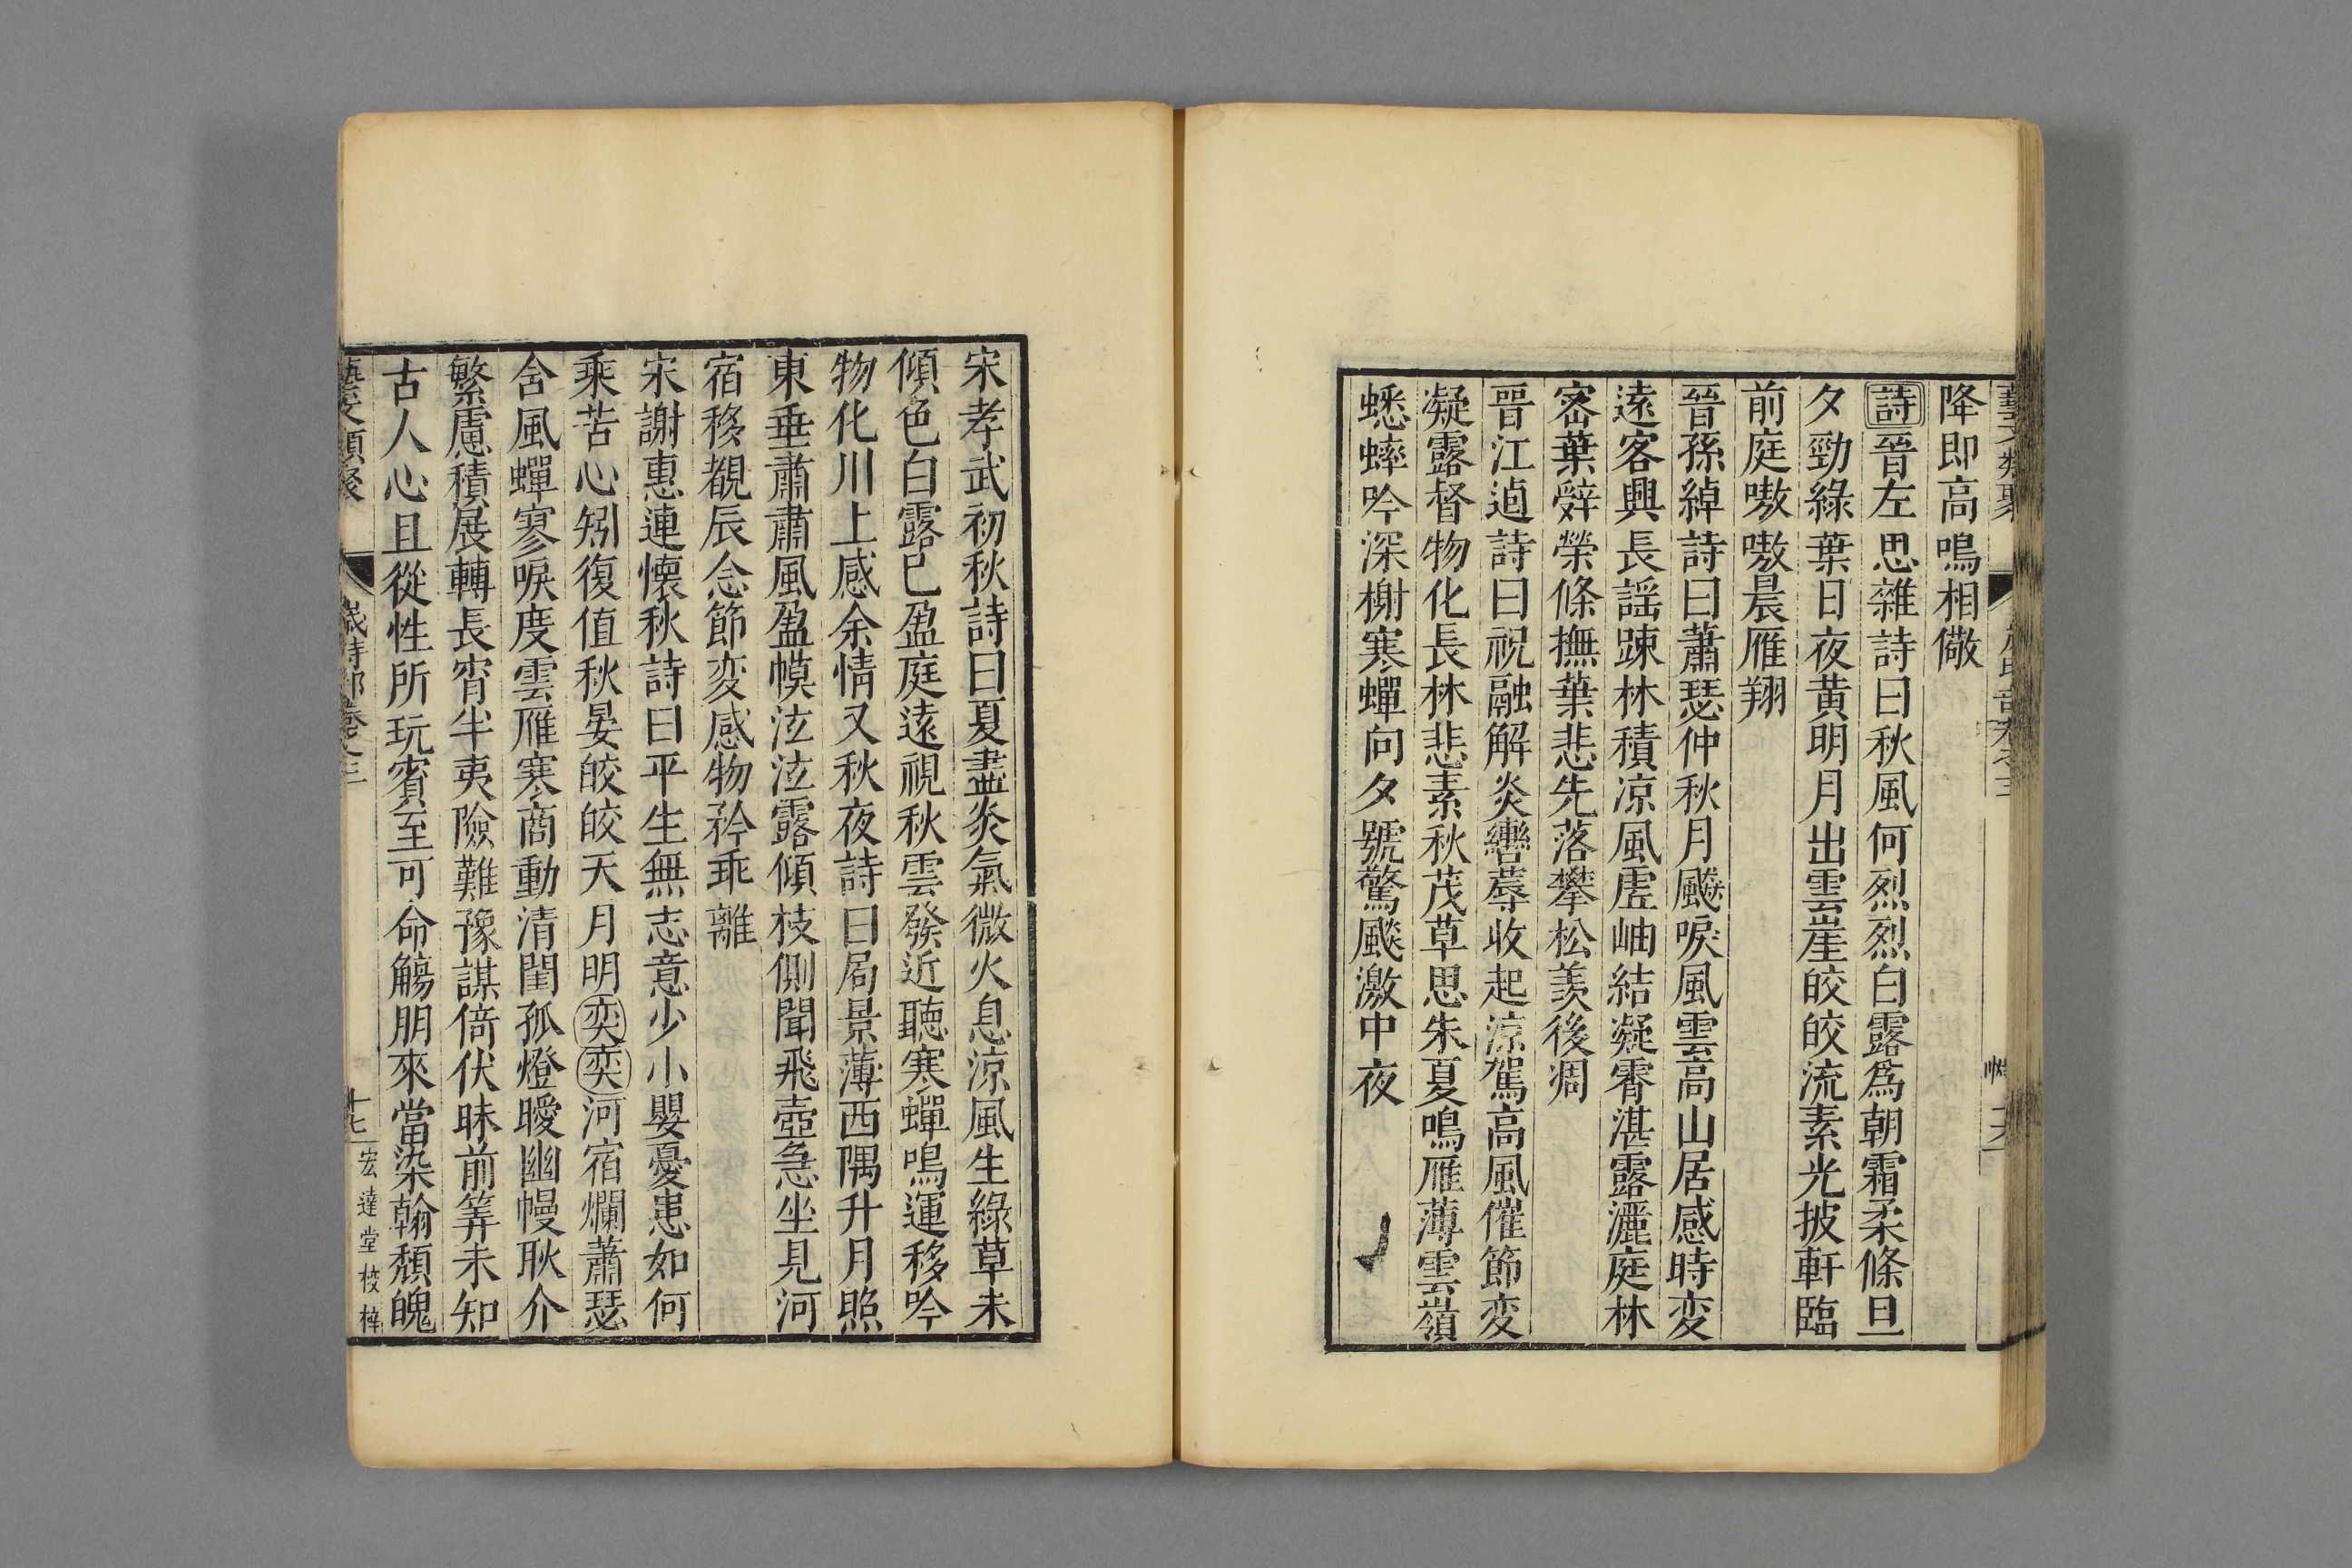 降即高鳴相儆
詩晉左思雜詩曰秋風何烈烈白露爲朝霜柔條旦
夕勁綠葉日夜黃明月出雲崖皎皎流素光披軒臨
前庭嗷嗷晨雁翔
晉孫綽詩曰蕭瑟仲秋月飂唳風雲高山居感時変
遠客興長謡踈林積凉風虛岫結凝霄湛露灑庭林
宻葉辤榮條撫葉悲先落攀松羨後凋
晉江逌詩曰祝融解炎轡蓐收起凉駕高風催節変
凝露督物化長林悲素秋茂草思朱夏鳴雁薄雲嶺
蟋蟀吟深榭寒蟬向夕號驚飈激中夜
宋孝武初秋詩曰夏盡炎氣微火息涼風生綠草未
傾色白露已盈庭遠視秋雲發近聽寒蟬鳴運移吟
物化川上感余情又秋夜詩曰局景薄西隅升月照
東垂肅肅風盈幙泫泫露傾枝側聞飛壺急坐見河
宿移覩辰念節変感物矜乖離
宋謝惠連懷秋詩曰平生無志意少小嬰憂患如何
乘苦心矧復值秋晏皎皎天月明奕奕河宿爛蕭瑟
含風蟬寥唳度雲雁寒商動清閨孤燈曖幽幔耿介
繁慮積展轉長宵半夷險難豫謀倚伏昧前筭未知
古人心且從性所玩賓至可命觴朋來當染翰頹魄
藝文類聚 歲時部卷之三 十七 宏達堂校梓